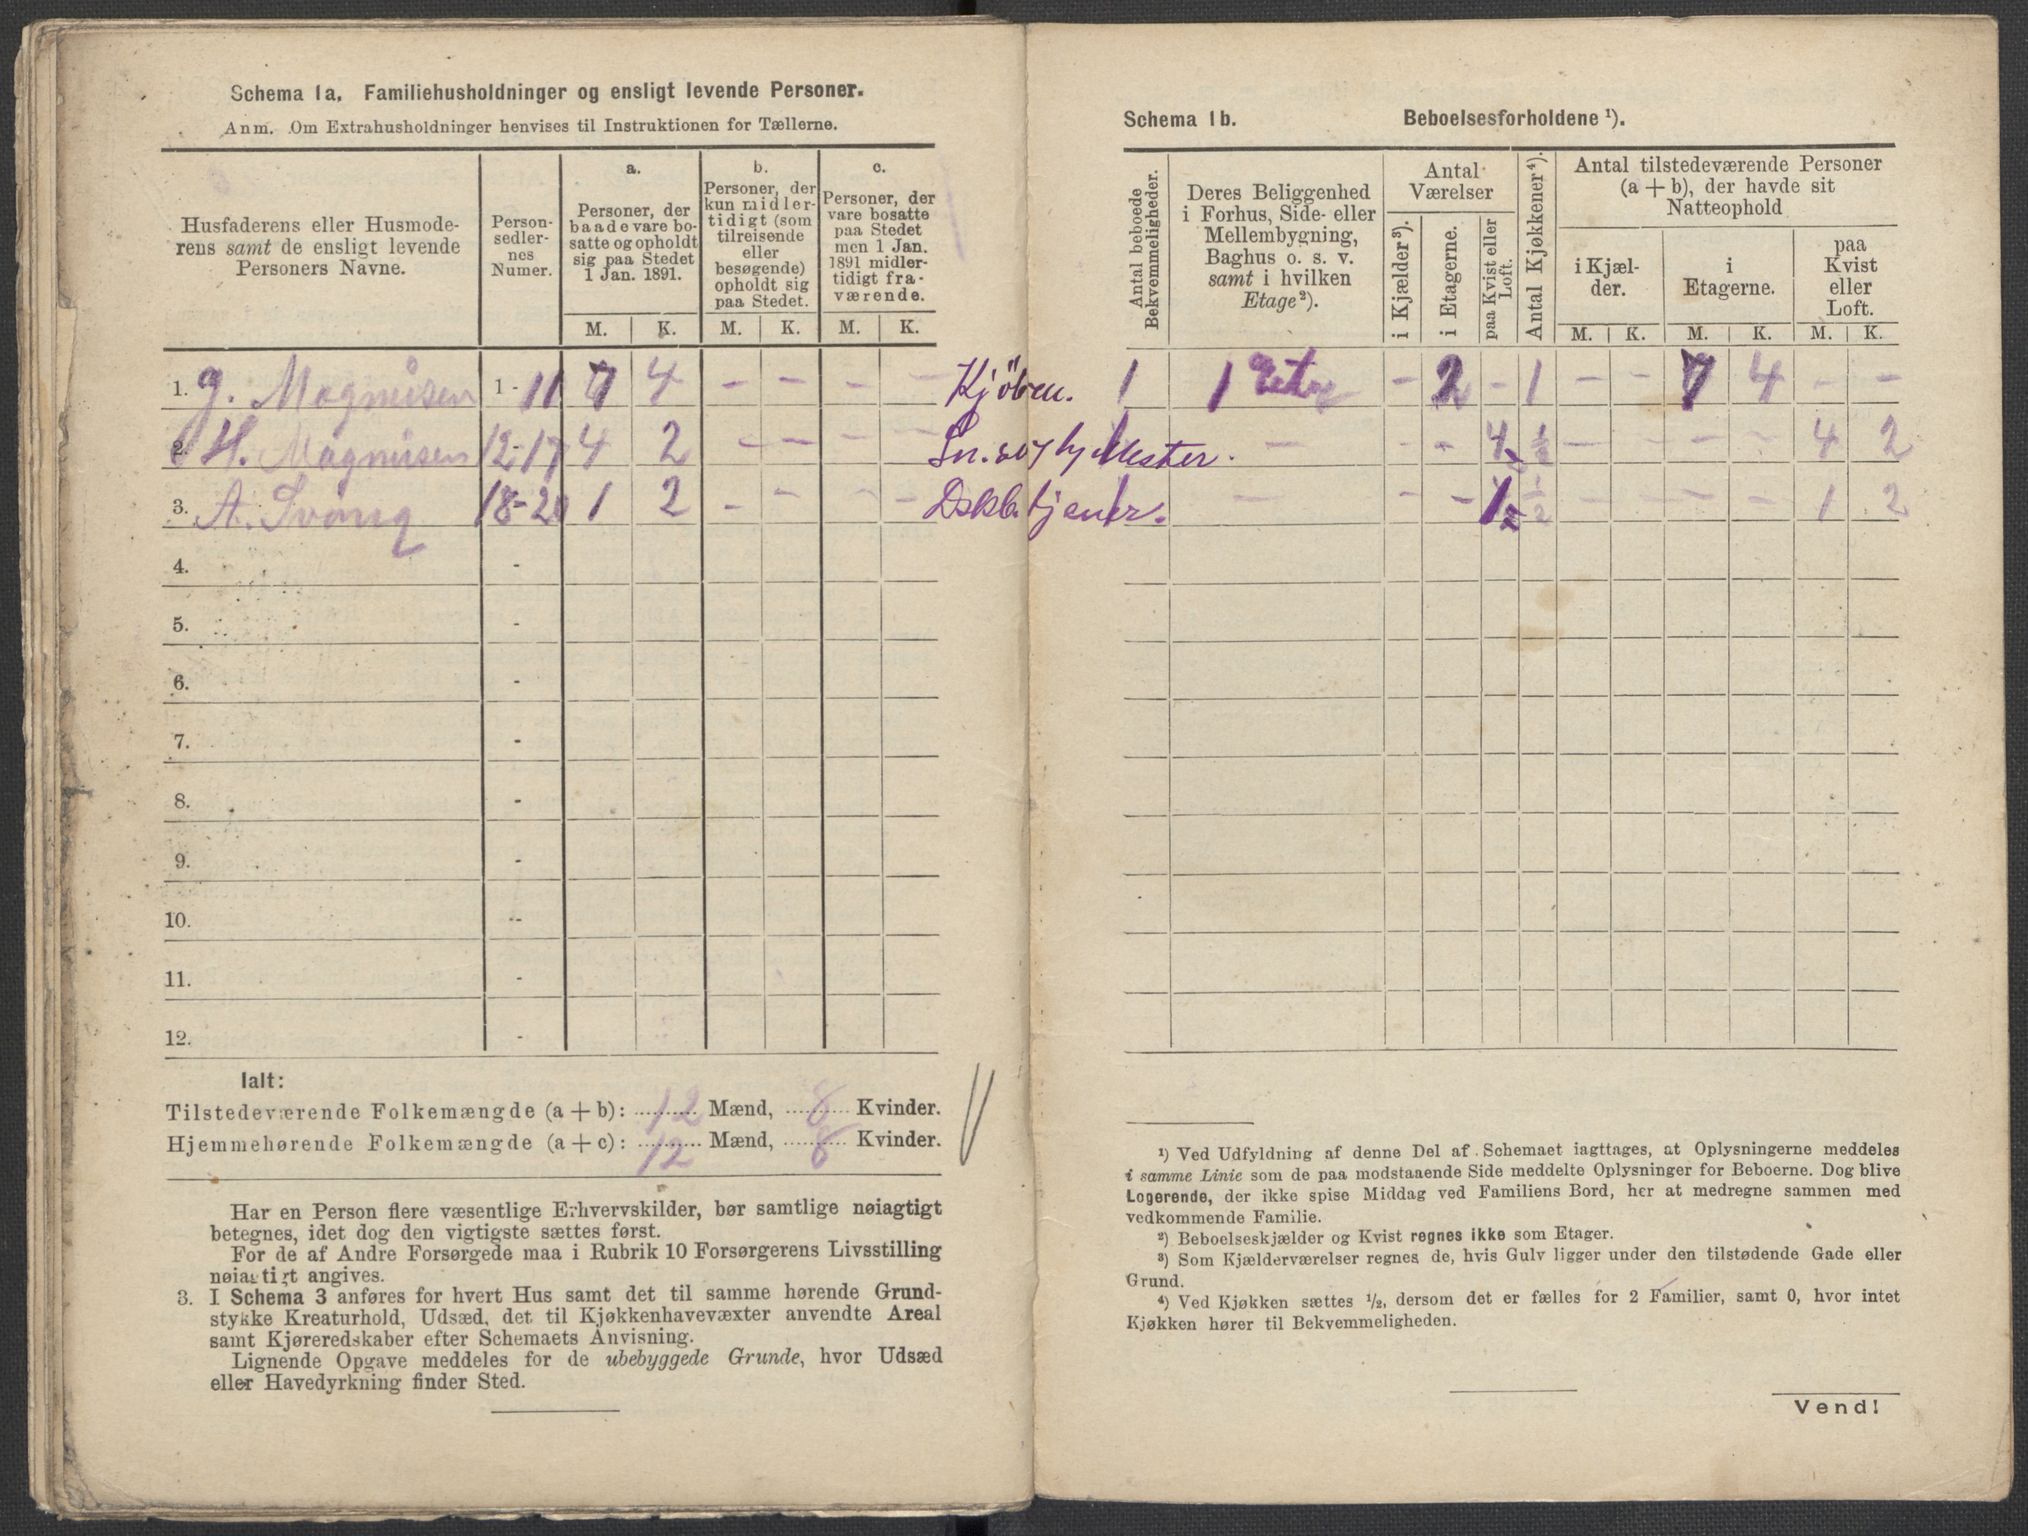 Schema 1a. Familiehusholdninger og ensligt levende Personer.
Anm. Om Extrahusholdninger henvises til Instruktionen for Tællerne.
Husfaderens eller Husmoderens samt de ensligt levende Personers Navne.
Person-sedler-nes Numer.
a. Personer, der baade vare bosatte og opholdt sig paa Stedet 1 Jan. 1891.
b. Personer, der kun midlertidigt (som tilreisende eller besøgende) opholdt sig paa Stedet.
c. Personer, der vare bosatte paa Stedet men 1 Jan. 1891 midlertidigt fraværende.
M. K. M. K. M. K.
1. G. Magnusen 1 - 11 7 4 – – – – Kjöbm.
2. H. Magnusen 12-17 4 2 – – – – Sn.
3. A. 18-20 1 2 – – – – Dskb.tjener.
4. -
5. -
6. -
7. -
8. -
9. -
10. --
11. -
12. -
Ialt:
Tilstedeværende Folkemængde (a + b): 12 Mænd, 8 Kvinder.
Hjemmehørende Folkemængde (a + c): 12 Mænd, 8 Kvinder.
Har en Person flere væsentlige Erhvervskilder, bør samtlige nøiagtigt
betegnes, idet dog den vigtigste sættes først.
For de af Andre Forsørgede maa i Rubrik 10 Forsørgerens Livsstilling
nøiagtigt angives.
3. I Schema 3 anføres for hvert Hus samt det til samme hørende Grund-
stykke Kreaturhold, Udsæd, det til Kjøkkenhavevæxter anvendte Areal
samt Kjøreredskaber efter Schemaets Anvisning.
Lignende Opgave meddeles for de ubebyggede Grunde, hvor Udsæd
eller Havedyrkning finder Sted.
Schema 1b. Beboelsesforholdene ¹).
Antal beboede Bekvemmeligheder.
Deres Beliggenhed i Forhus, Side- eller Mellembygning, Baghus o. s. v. samt i hvilken Etage ²).
Antal Værelser
i Kjælder ³). i Etagerne. paa Kvist eller Loft.
Antal Kjøkkener ⁴).
Antal tilstedeværende Personer (a + b), der havde sit Natteophold
i Kjælder. i Etagerne. paa Kvist eller Loft.
M. K. M. K. M. K.
1 1 – 2 – 1 – – 7 4 – –
– – – 4 ½ – – – – 4 2
– – – 1 ½ – – – – 1 2
¹) Ved Udfyldning af denne Del af Schemaet iagttages, at Oplysningerne meddeles
i samme Linie som de paa modstaaende Side meddelte Oplysninger for Beboerne. Dog blive
Logerende, der ikke spise Middag ved Familiens Bord, her at medregne sammen med
vedkommende Familie.
²) Beboelseskjælder og Kvist regnes ikke som Etager.
³) Som Kjælderværelser regnes de, hvis Gulv ligger under den tilstødende Gade eller
Grund.
⁴) Ved Kjøkken sættes ½, dersom det er fælles for 2 Familier, samt 0, hvor intet
Kjøkken hører til Bekvemmeligheden.
Vend!